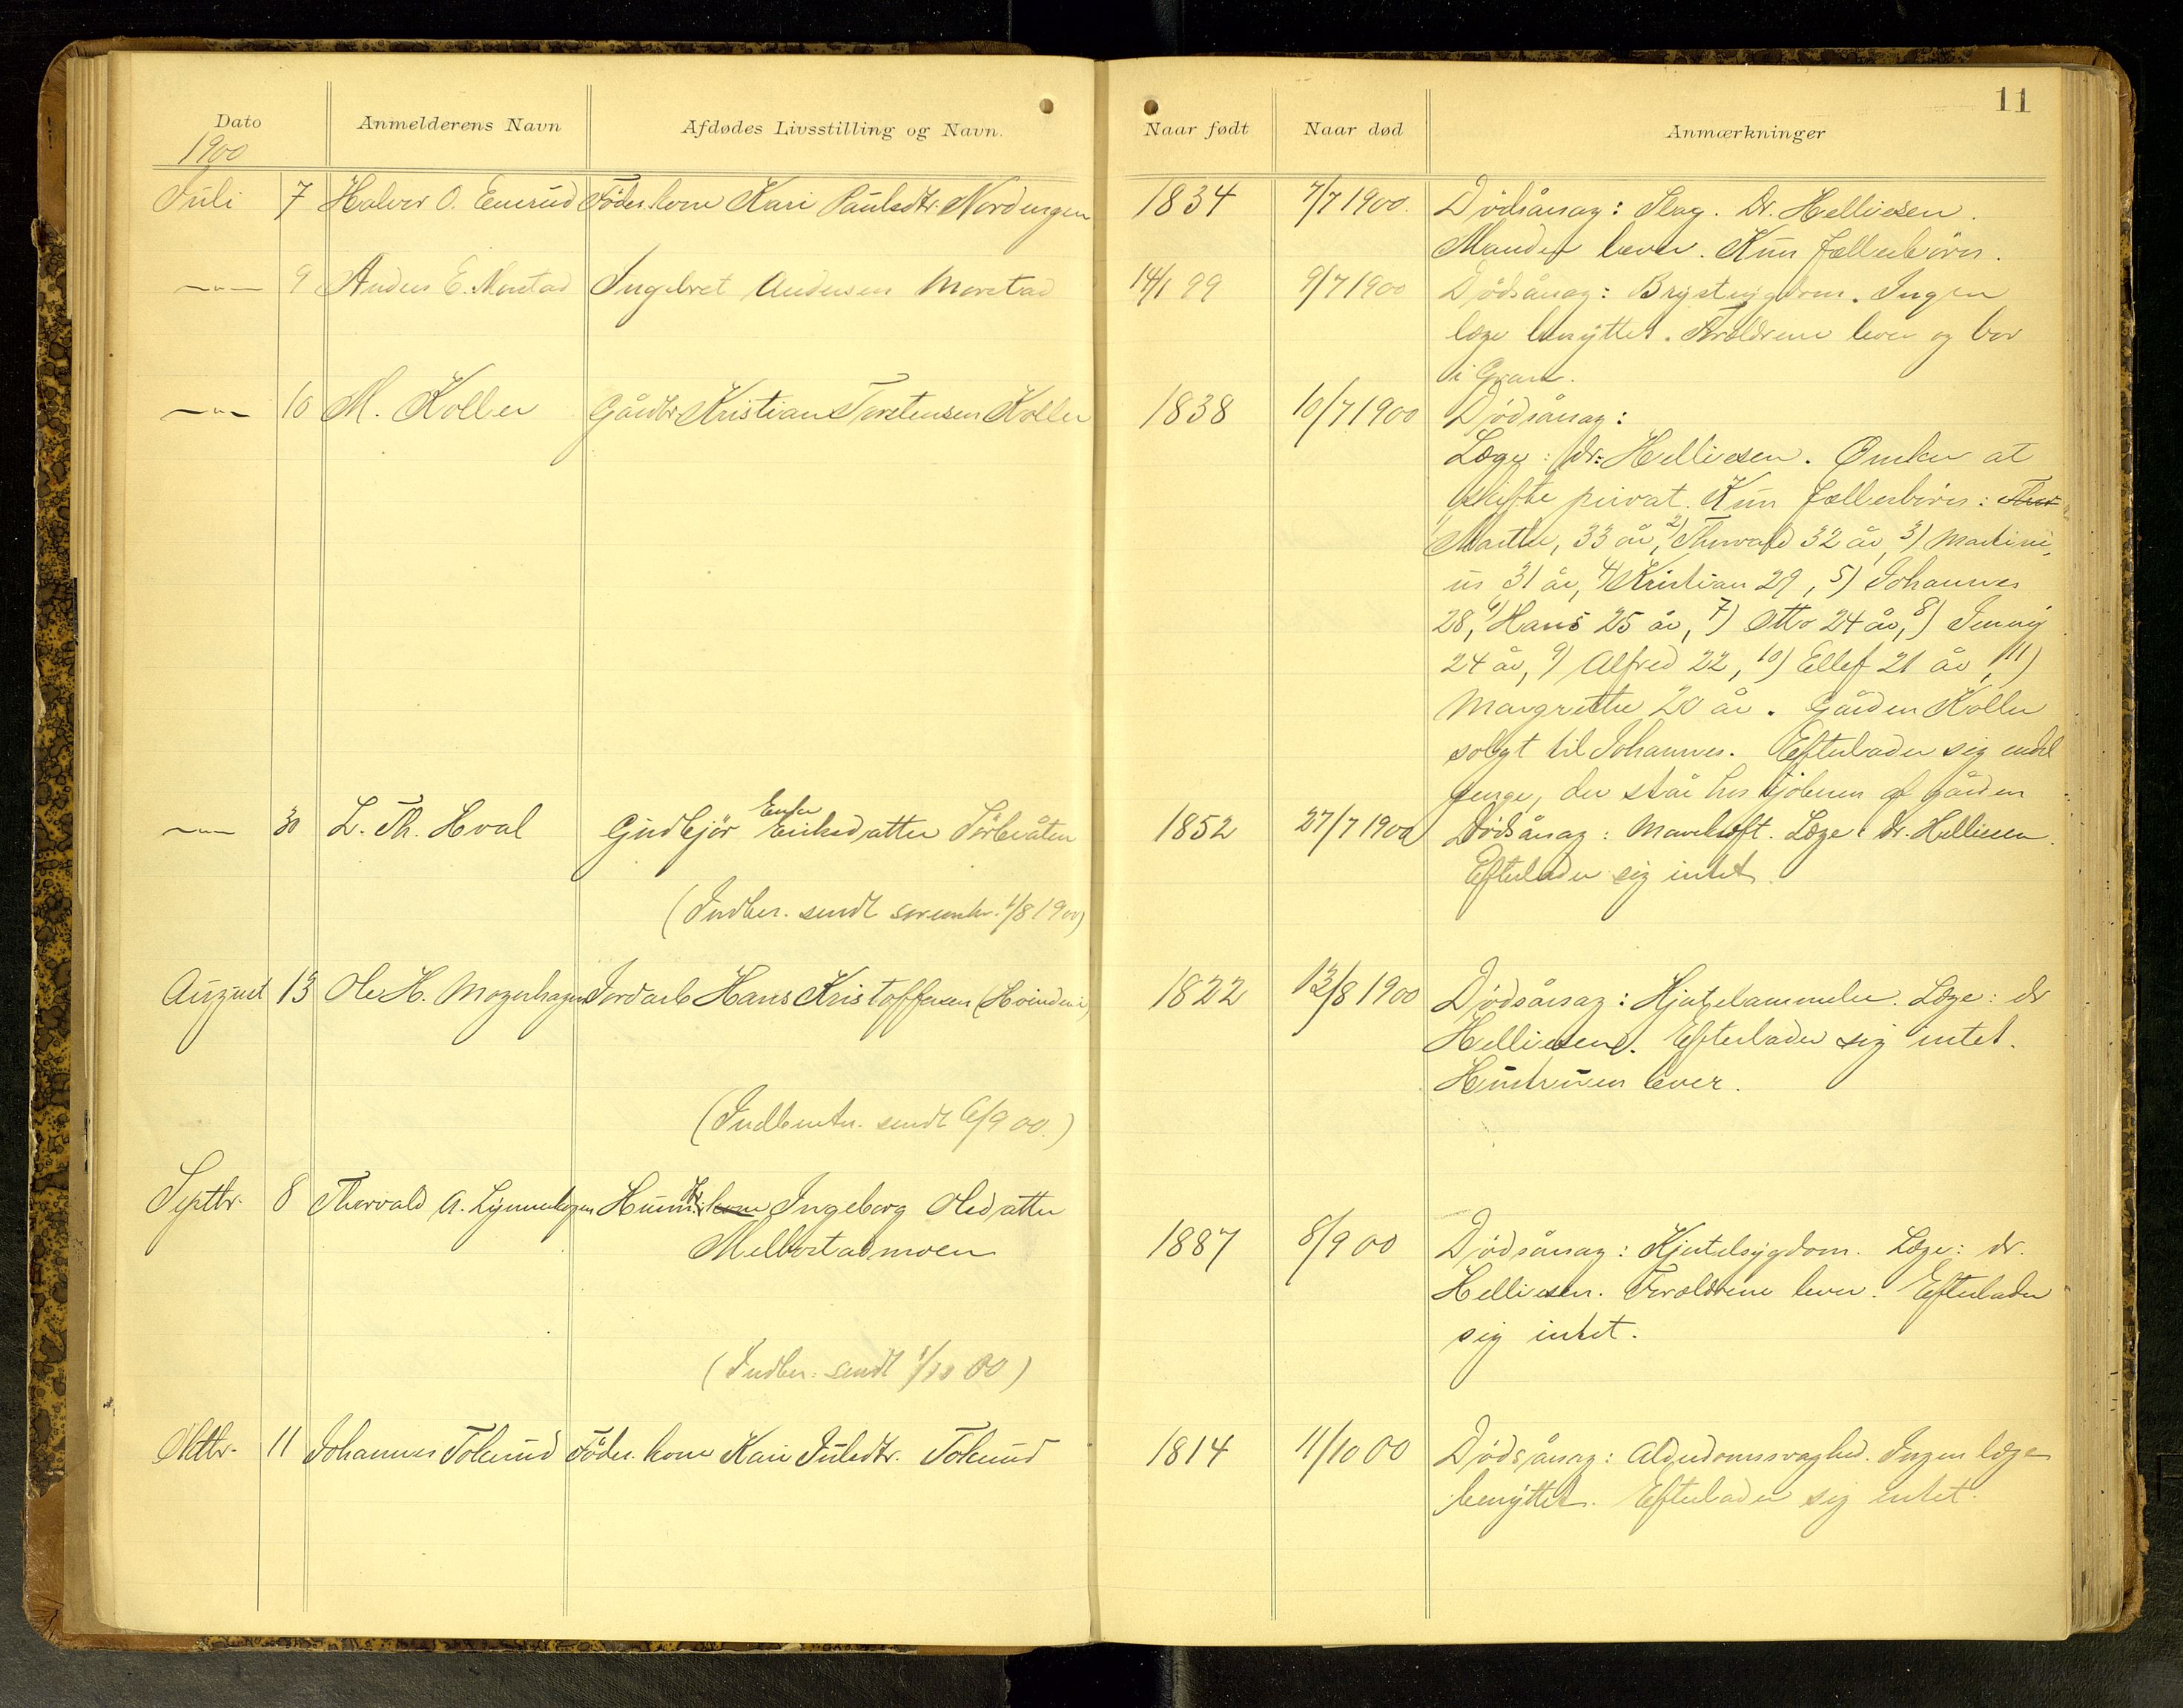 11
Dato Anmelderens Navn Afdødes Livsstilling og Navn. Naar født Naar død Anmærkninger
1900
Juli 7 Halvor O. Enerud Föder.kone Kari Paulsdtr. Nordengen 1834 7/7 1900. Dödsårsag: Slag. Dr. Helliesen.
Manden lever. Kun fællesbörn.
—"— 9 Anders E. Morstad Ingebret Andersen Morstad 14/1 99 9/7 1900 Dödsårsag: Brystsygdom. Ingen
læge benyttet. Forældrene lever og bor
i Gran.
—"— 10 M. Koller Gårdbr. Kristian Torstensen Koller 1838 10/7 1900 Dödsårsag:
Læge: dr. Helliesen. Önsker at
skifte privat. Kun fællesbörn: Thor
1) Marthe, 33 år, 2) Thorvald 32 år, 3) Martini-
us 31 år, 4) Kristian 29, 5) Johannes
28, 6) Hans 25 år, 7) Otto 24 år, 8) Jenny
24 år, 9) Alfred 22, 10) Ellef 21 år, 11)
Margrethe 20 år. Gården Koller
solgt til Johannes. Efterlader sig endel
penge, der står hos kjöberen af gården
—"— 30 L. Th. Hval Gudbjör Enke Eriksdatter Törberåten 1852 27/7 1900 Dödsårsag: Mavekræft. Læge: dr. Helliesen.
Efterlader sig intet.
(Indber. sendt sorenskr. 1/8 1900)
August 13 Ole H. Mogenhagen Jordarb Hans Kristoffersen (Hvinden) 1822 13/8 1900 Dödsårsag: Hjertelammelse. Læge: dr
Helliesen. Efterlader sig intet.
Hustruen lever.
(Indberetn. sendt 6/9 00.)
Septbr. 8 Thorvald A. Lynnebagen Husm.dtr. kone Ingeborg Olsdatter
Melbostadmoen 1887 8/9 00 Dödsårsag: Kjertelsygdom. Læge: dr.
Helliesen. Forældrene lever. Efterlader
sig intet.
(Indber. sendt 1/10 00)
Oktbr. 11 Johannes Tokerud Föder.kone Kari Julsdtr. Tokerud 1814 11/10 00 Dödsårsag: Alderdomssvaghed. Ingen læge
benyttet. Efterlader sig intet.